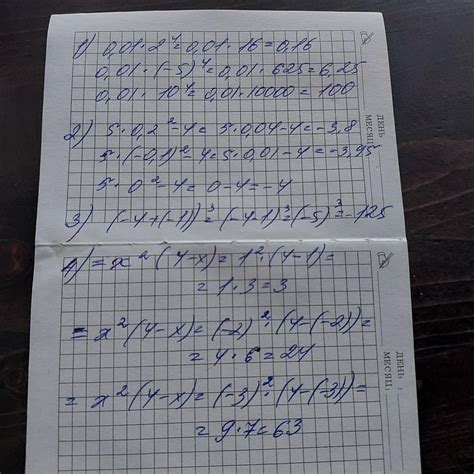 1) 0,01·2⁴=0,01·16=0,16
0,01·(-5)⁴=0,01·625=6,25
0,01·10⁴=0,01·10000=100
2) 5·0,2²-4=5·0,04-4=-3,8
5·(-0,1)²-4=5·0,01-4=-3,95
5·0²-4=0-4=-4
3) (-4+(-1))³=(-4-1)³=(-5)³=-125
4) = x²(4-x)=1²·(4-1)=
= 1·3=3
= x²(4-x)=(-2)²·(4-(-2))=
= 4·6=24
= x²(4-x)=(-3)²·(4-(-3))=
= 9·7=63
ДЕНЬ
МЕСЯЦ:
ДЕНЬ :
МЕСЯЦ: